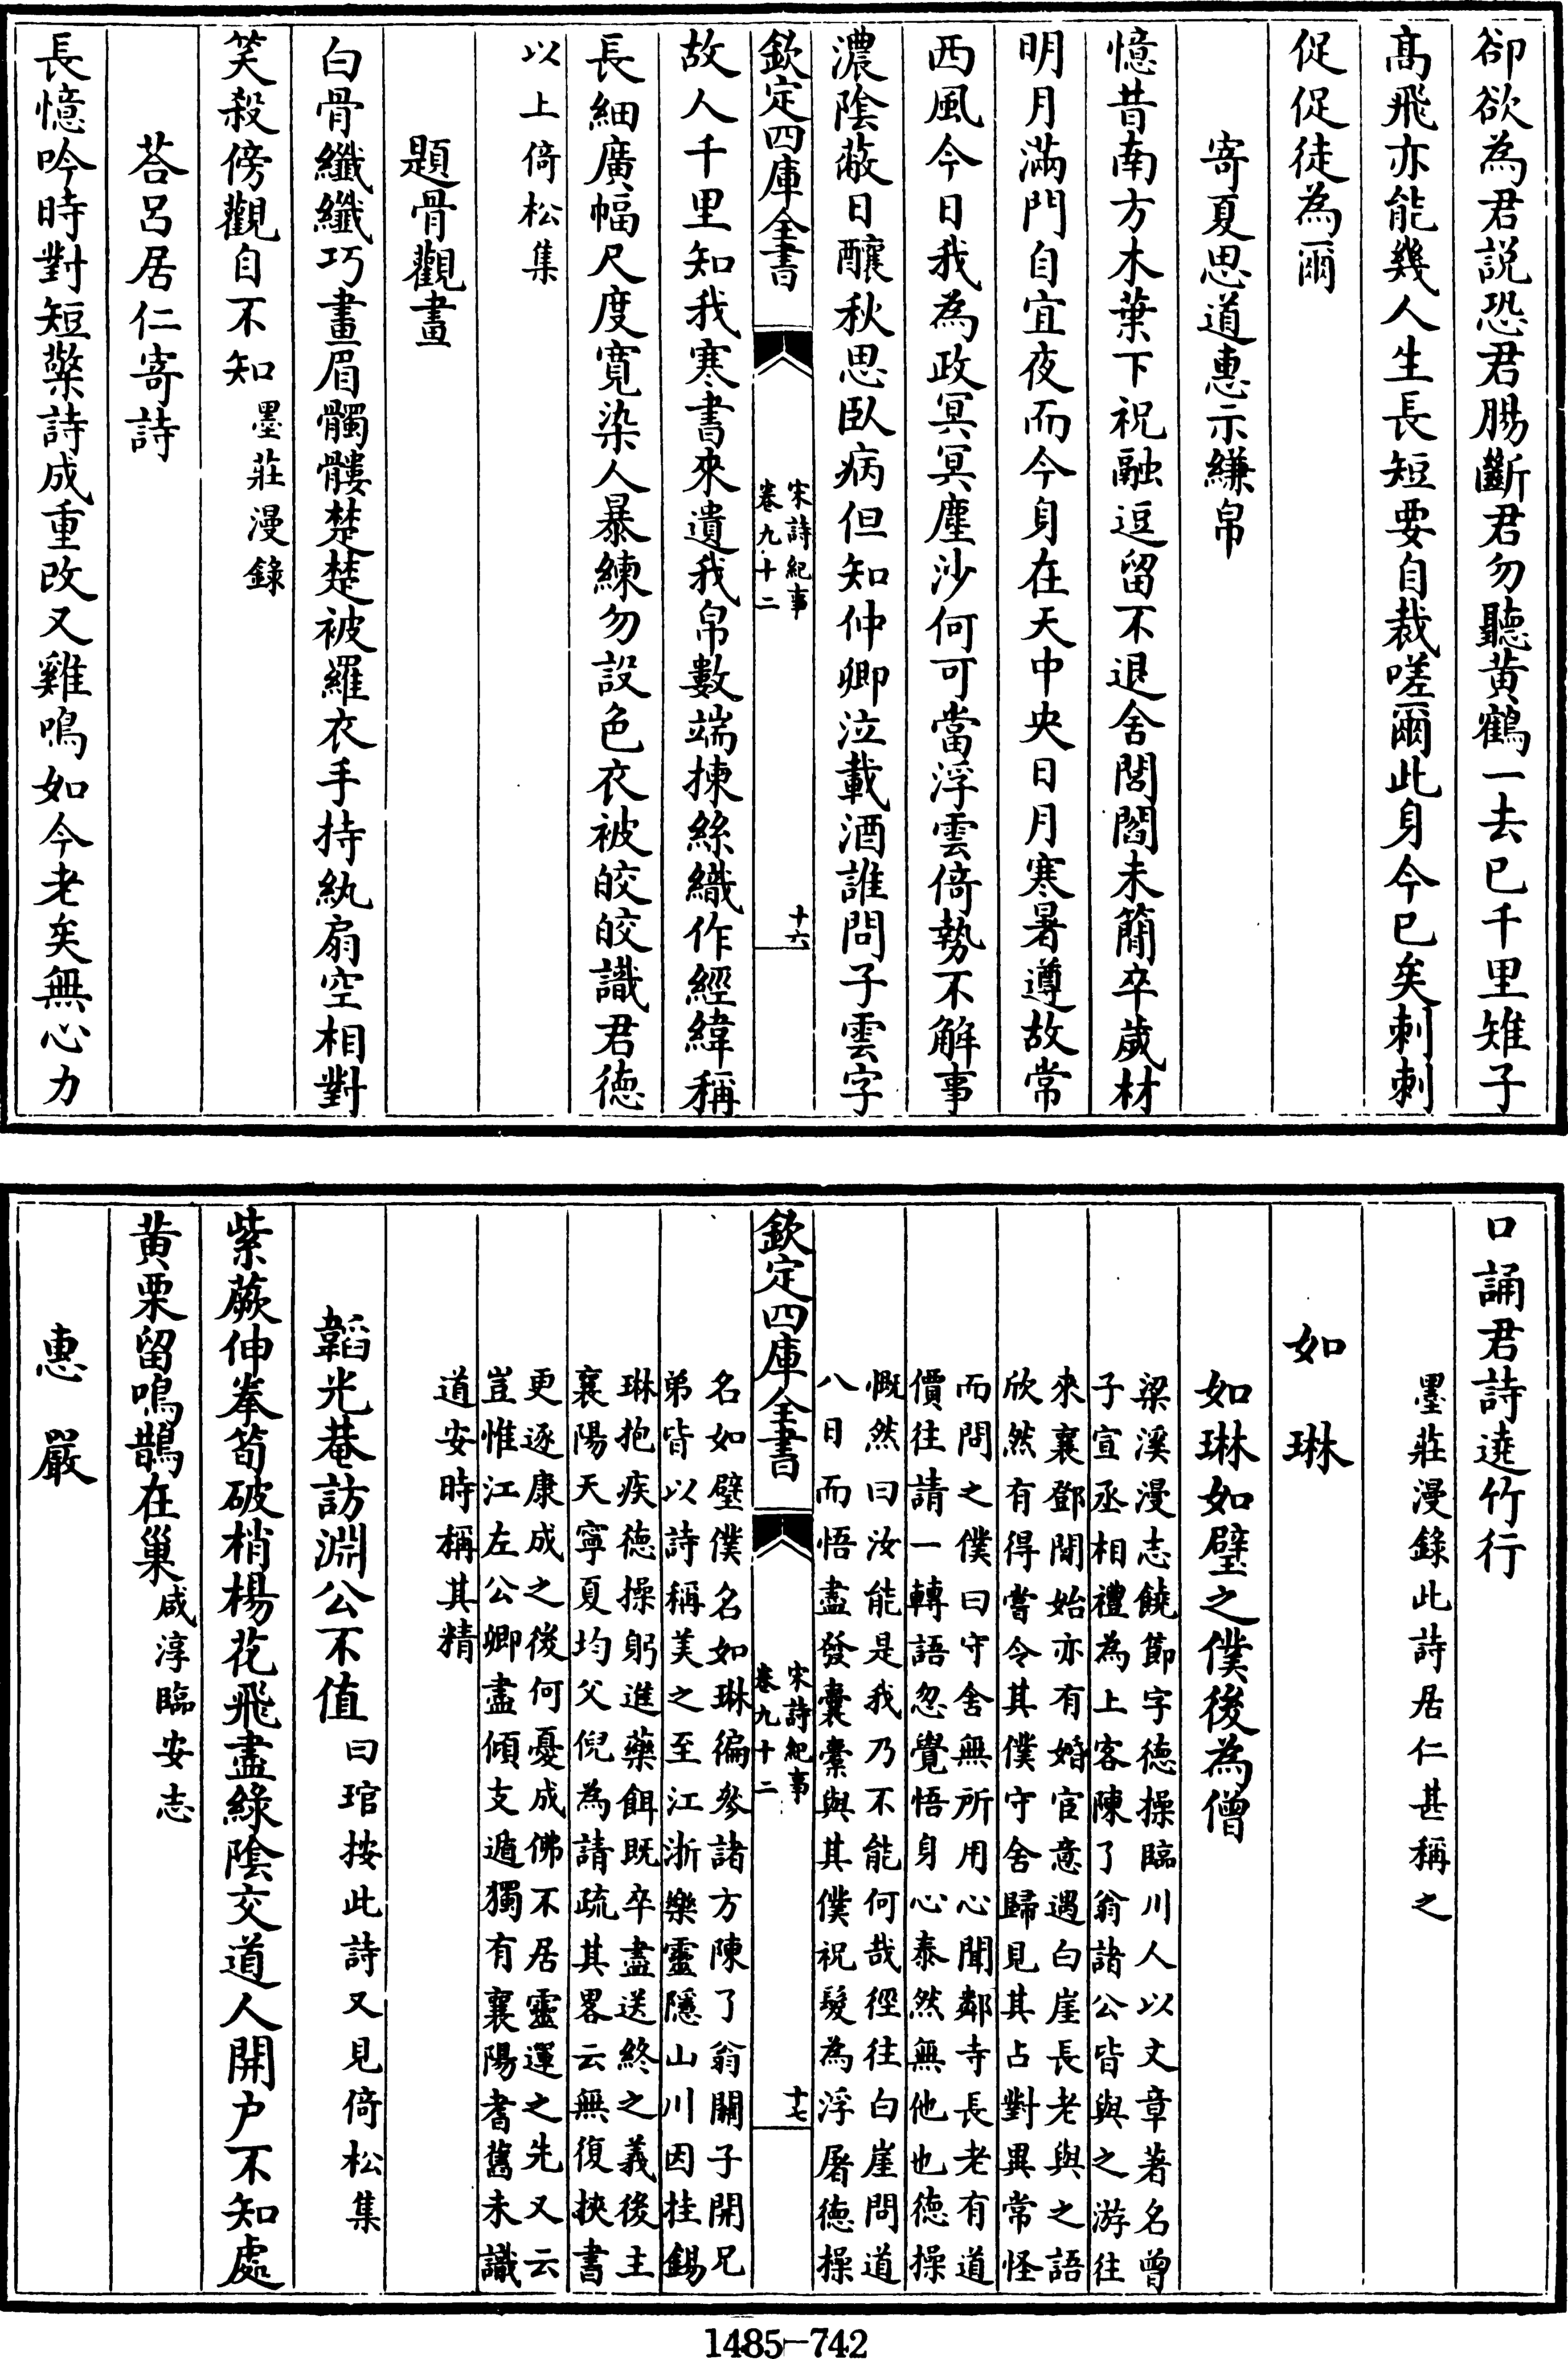 卻欲為君説恐君腸斷君勿聽黄鶴一去已千里雉子
髙飛亦能幾人生長短要自裁嗟爾此身今已矣刺刺
促促徒為爾
寄夏思道惠示縑帛
憶昔南方木葉下祝融逗留不退舍閭閻未簡卒歲材
明月滿門自宜夜而今身在天中央日月寒暑遵故常
西風今日我為政冥冥塵沙何可當浮雲倚勢不解事
濃陰蔽日釀秋思臥病但知仲卿泣載酒誰問子雲字
欽定四庫全書
宋詩紀事
卷九十二
十六
故人千里知我寒書來遺我帛數端揀絲織作經緯稱
長細廣幅尺度寛染人暴練勿設色衣被皎皎識君徳
以上倚松集
題骨觀畫
白骨纖纖巧畫眉髑髏楚楚被羅衣手持紈扇空相對
笑殺傍觀自不知墨莊漫錄
荅呂居仁寄詩
長憶吟時對短檠詩成重改又雞鳴如今老矣無心力
口誦君詩遶竹行
墨莊漫錄此詩居仁甚稱之
如琳
如琳如璧之僕後為僧
梁溪漫志饒節字徳操臨川人以文章著名曾
子宣丞相禮為上客陳了翁諸公皆與之游往
來襄鄧間始亦有婚宦意遇白崖長老與之語
欣然有得嘗令其僕守舍歸見其占對異常怪
而問之僕曰守舍無所用心聞鄰寺長老有道
價往請一轉語忽覺悟身心泰然無他也徳操
慨然曰汝能是我乃不能何哉徑往白崖問道
八日而悟盡發囊橐與其僕祝髮為浮屠徳操
欽定四庫全書
宋詩紀事
卷九十二
十七
名如璧僕名如琳徧參諸方陳了翁關子開兄
弟皆以詩稱美之至江浙樂靈隱山川因挂錫
琳抱疾徳操躬進藥餌既卒盡送終之義後主
襄陽天寧夏均父倪為請疏其畧云無復挾書
更逐康成之後何憂成佛不居靈運之先又云
豈惟江左公卿盡傾支遁獨有襄陽耆舊未識
道安時稱其精
韜光菴訪淵公不值曰琯按此詩又見倚松集
紫蕨伸拳筍破梢楊花飛盡綠陰交道人開户不知處
黄栗留鳴鵲在巢咸淳臨安志
惠嚴
1485-742